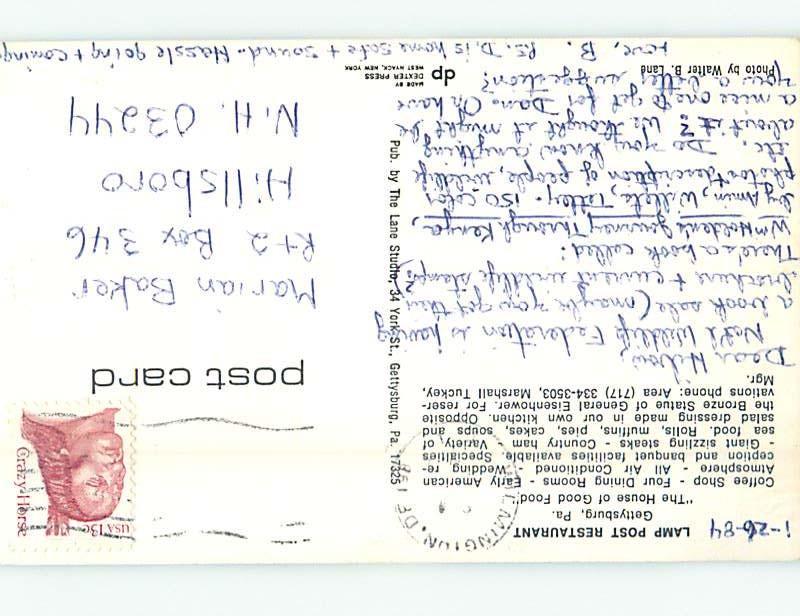 1-26-84
LAMP POST RESTAURANT
Gettysburg, Pa.
"The House of Good Food"
Coffee Shop - Four Dining Rooms - Early American
Atmosphere - All Air Conditioned - Wedding, re-
ception and banquet facilities available. Specialties
- Giant sizzling steaks - Country ham - Variety of
sea food. Rolls, muffins, pies, cakes, soups and
salad dressing made in our own kitchen. Opposite
the Bronze Statue of General Eisenhower. For reser-
vations phone: Area (717) 334-3503, Marshall Tuckey,
Mgr.
Dear
Nat'l Wildlife Federation is having
a book sale (maybe you get their
brochers + current wildlife stamps?
There's a book called:
Wm Holden's Journey Through Kenya,
by Amin, Willets, Tetley. 150 color
photos + description of people, wildlife
etc. Do you know anything
about it? We thought it might be
a nice one to get for Dano. Or have
you a better suggestion?
Love, B.
P.S. D. is home safe + sound. Hassle going + coming
Photo by Walter B. Lane
Pub. by The Lane Studio, 34 York St., Gettysburg, Pa. 17325
dp
MADE BY
DEXTER PRESS
WEST NYACK, NEW YORK
WILMINGTON, DE
post card
USA 13c
Crazy Horse
Marian Baker
Rt 2 Box 346
Hillsboro
N.H. 03244